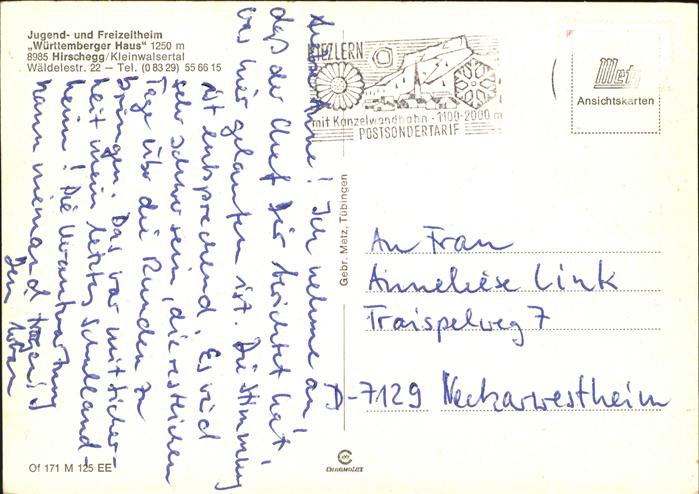 Jugend- und Freizeitheim
„Württemberger Haus" 1250 m
8985 Hirschegg/Kleinwalsertal
Wäldelestr. 22 – Tel. (0 83 29) 55 66 15
Anne! Ich nehme an,
daß der Chef Dir berichtet hat,
was hier gelaufen ist. Die Stimmung
ist entsprechend. Es wird
sehr schwer sein, die restlichen
Tage über die Runden zu
bringen. Das war mit Sicher-
heit mein letztes Schulland-
heim! Die Verantwortung
kann niemand tragen!
Dein
RIEZLERN
mit Kanzelwandbahn · 1100-2000 m
POSTSONDERTARIF
Metz
Ansichtskarten
Gebr. Metz, Tübingen
An Frau
Anneliese Link
Traispelweg 7
D-7129 Neckarwestheim
Of 171 M 125 EE
CHROMOLUX